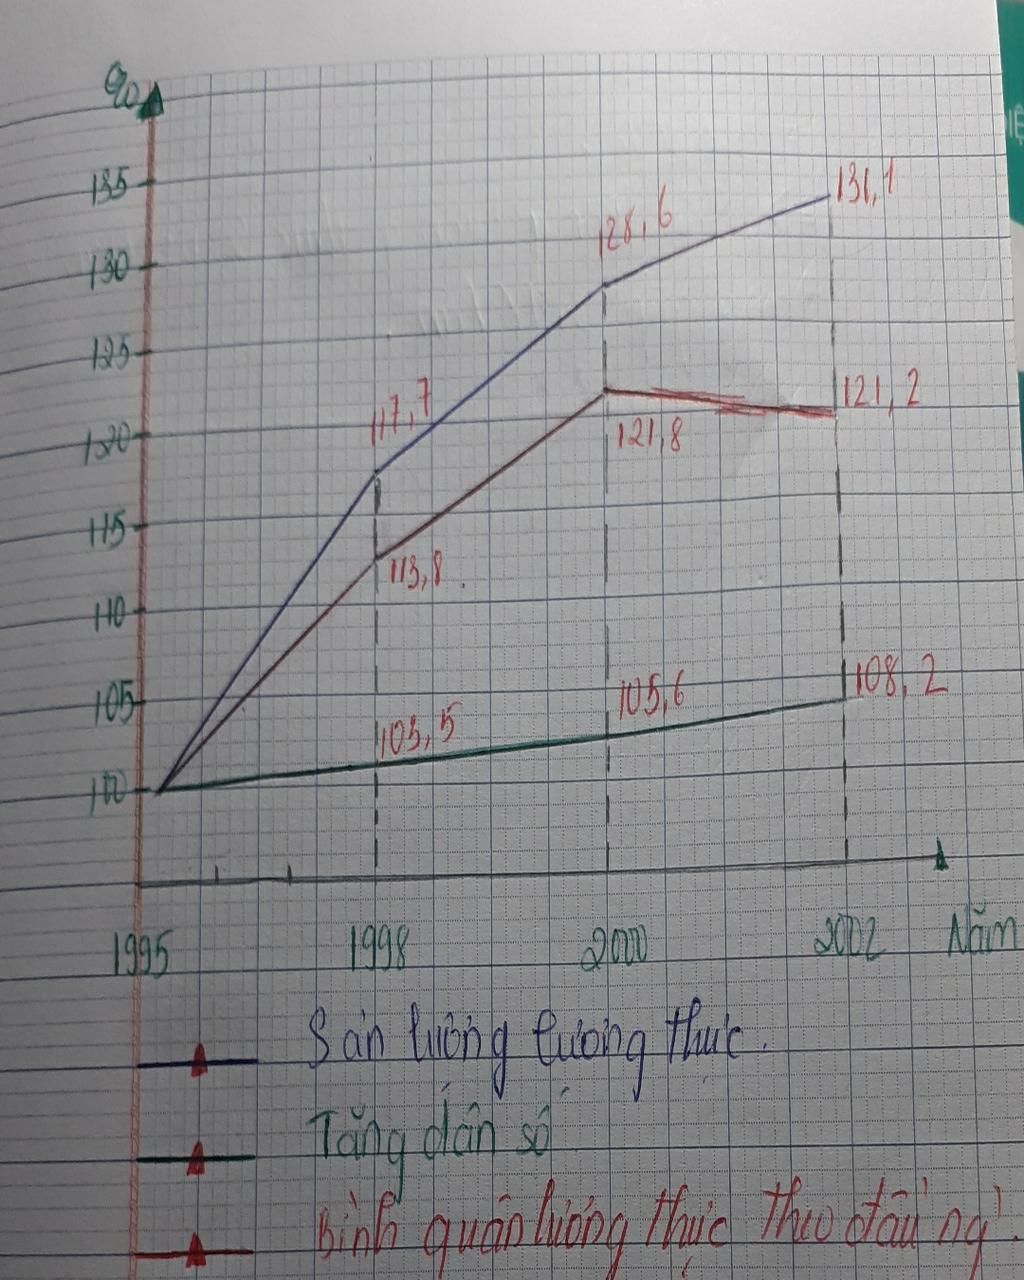 %
135
131,1
128,6
130
125
117,7
121,2
120
121,8
115
113,8
110
105
108,2
105,6
103,5
100
1995 1998 2000 2002 Năm
Sản lượng lương thực.
Tăng dân số
Bình quân lương thực theo đầu ng'.